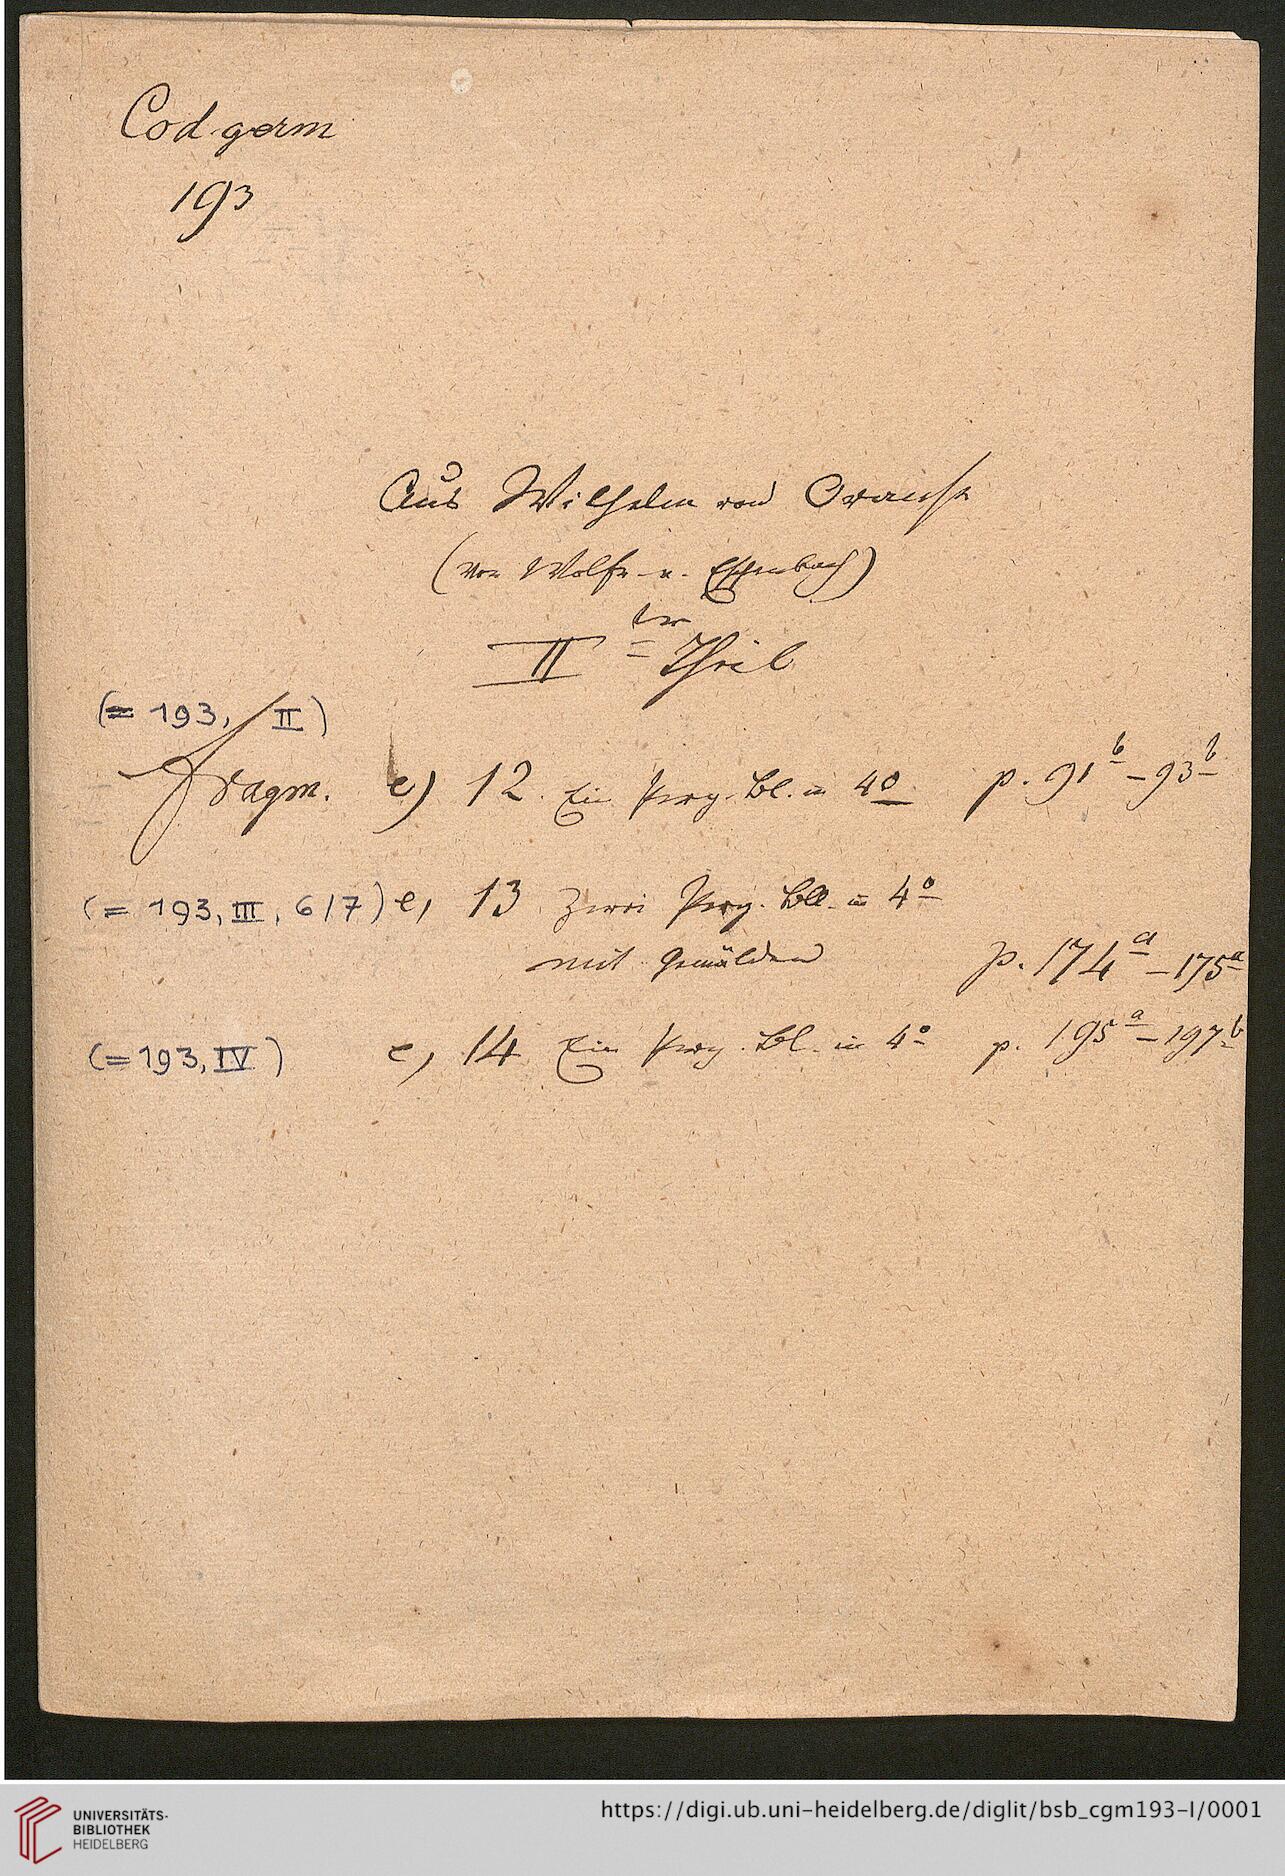 Cod. germ
193
Aus Wilhelm von Oranse
(von Wolfr. v. Eschenbach)
II ter Theil
(= 193, II)
Fragm. e) 12. Ein Perg. Bl. in 4º p. 91b – 93b
(= 193, III, 6/7) e, 13 Zwei Perg. Bll. in 4º
mit Gemälden p. 174a – 175a
(= 193, IV) e, 14 Ein Perg. Bl. in 4º p. 195a – 197b
UNIVERSITÄTS-
BIBLIOTHEK
HEIDELBERG
https://digi.ub.uni-heidelberg.de/diglit/bsb_cgm193-I/0001